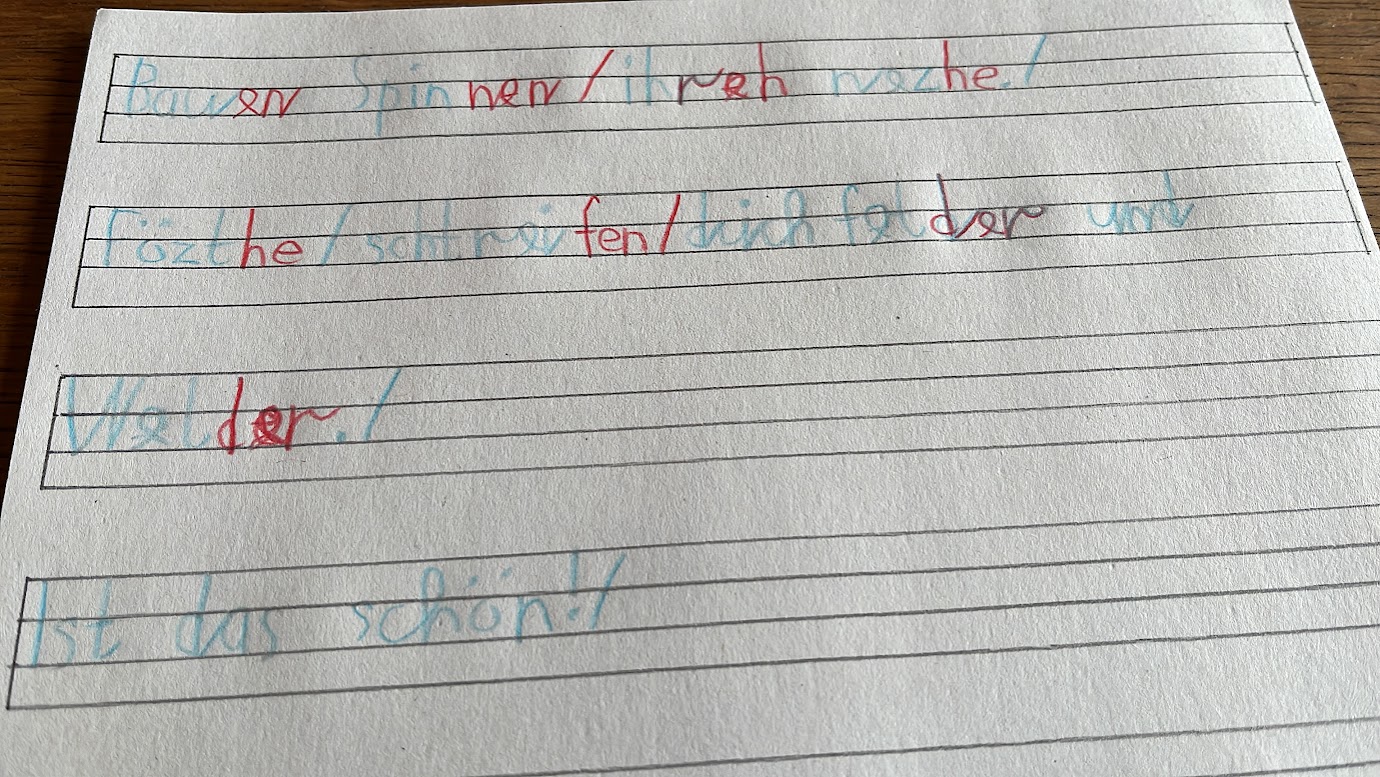 Bauen Spinnen/ihreh nezhe./
Fözthe/schtreifen/durch felder unt
Welder./
Ist das schön!/